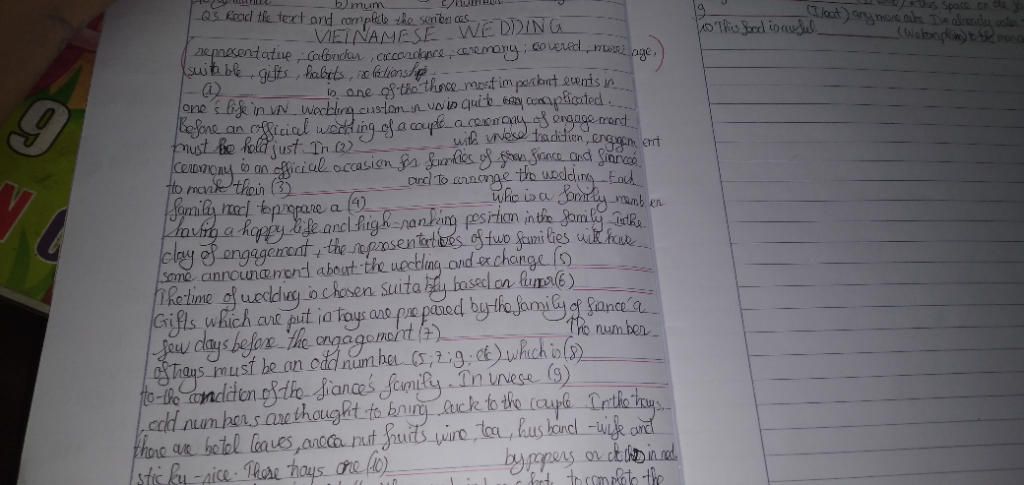 b) mum
Q5 Read the text and complete the sentences
VIETNAMESE WEDDING
representative, calendar, accordance, ceremony, covered, marriage,
suitable, gifts, habits, relationship
(1) is one of the three most important events in
one's life in VN wedding custom in VN is quite complicated.
Before an official wedding of a couple a ceremony of engagement
must be held just. In (2) with vnese tradition, engagement
ceremony is an official occasion for families of fiance and fiancee
to mark their (3) and to arrange the wedding. Each
family need to prepare a (4) who is a family member
having a happy life and high-ranking position in the family In the
day of engagement, the representatives of two families will have
some announcement about the wedding and exchange (5)
The time of wedding is chosen suitably based on lunar (6)
Gifts which are put in trays are prepared by the family of fiance a
few days before the engagement (7) The number
of trays must be an odd number (5; 7; 9; etc) which is (8)
to the condition of the fiance's family. In vnese (9)
odd numbers are thought to bring luck to the couple In the trays
there are betel leaves, areca nut fruits wine, tea, husband-wife and
sticky-rice. These trays are (10) by papers or cloth in red
to complete the
9 (I/not) any more cake. I've already
10 This food is awful.